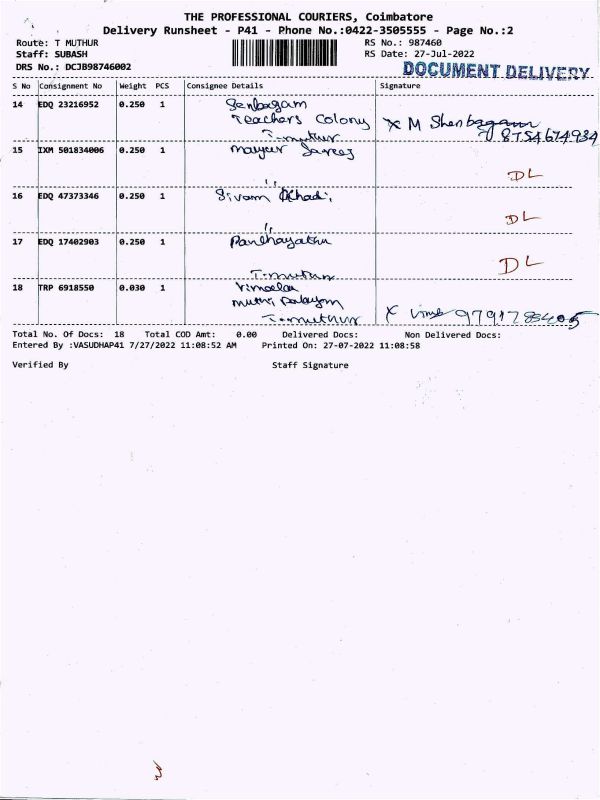 THE PROFESSIONAL COURIERS, Coimbatore
Delivery Runsheet - P41 - Phone No.:0422-3505555 - Page No.:2
Route: T MUTHUR RS No.: 987460
Staff: SUBASH RS Date: 27-Jul-2022
DRS No.: DCJB98746002 DOCUMENT DELIVERY
S No Consignment No Weight PCS Consignee Details Signature
14 EDQ 23216952 0.250 1 Senbagam
Teachers Colony X M Shenbagam
T-muthur 8754674934
15 IXM 501834006 0.250 1 mayur Sarees
" DL
16 EDQ 47373346 0.250 1 Sivam
" DL
17 EDQ 17402903 0.250 1
T-muthur DL
18 TRP 6918550 0.030 1 Vimala
muthu
T-muthur X 9791783405
Total No. Of Docs: 18 Total COD Amt: 0.00 Delivered Docs: Non Delivered Docs:
Entered By :VASUDHAP41 7/27/2022 11:08:52 AM Printed On: 27-07-2022 11:08:58
Verified By Staff Signature